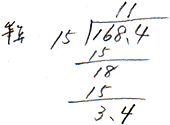 11
15 168.4
15
18
15
3.4